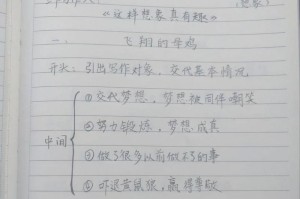 《这样想象真有趣》
一、 飞翔的母鸡
开头：引出写作对象，交代基本情况
中间
①交代梦想，梦想被同伴嘲笑
②努力锻炼，梦想成真
③做了很多以前做不了的事
④吓退黄鼠狼，赢得尊敬